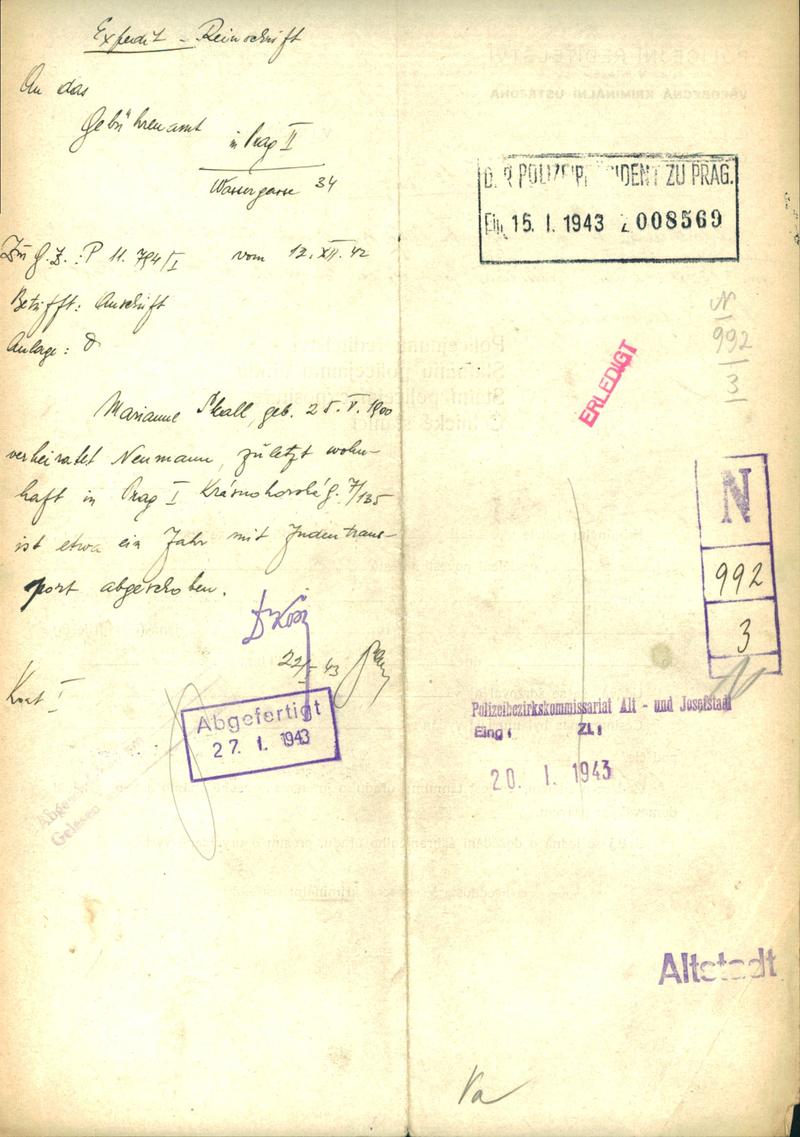 Expedit - Reinschrift
An das
Gebührenamt
in Prag II
Wassergasse 34
Zu G.Z.: P 11.794/I vom 12.XII.42
Betrifft: Anschrift
Anlage:
Marianne Skall, geb. 25.V.1900
verheiratet Neumann, zuletzt wohn-
haft in Prag I Krásnohorská g. 7/135
ist etwa ein Jahr mit Judentrans-
port abgeschoben.
22/I 43
Abgefertigt
27. I. 1943
Gelesen
DER POLIZEIPRÄSIDENT ZU PRAG.
Ein. 15. I. 1943 Z 008569
N
992
3
ERLEDIGT
N
992
3
Polizeibezirkskommissariat Alt - und Josefstadt
Eing: Zl:
20. I. 1943
Altstadt